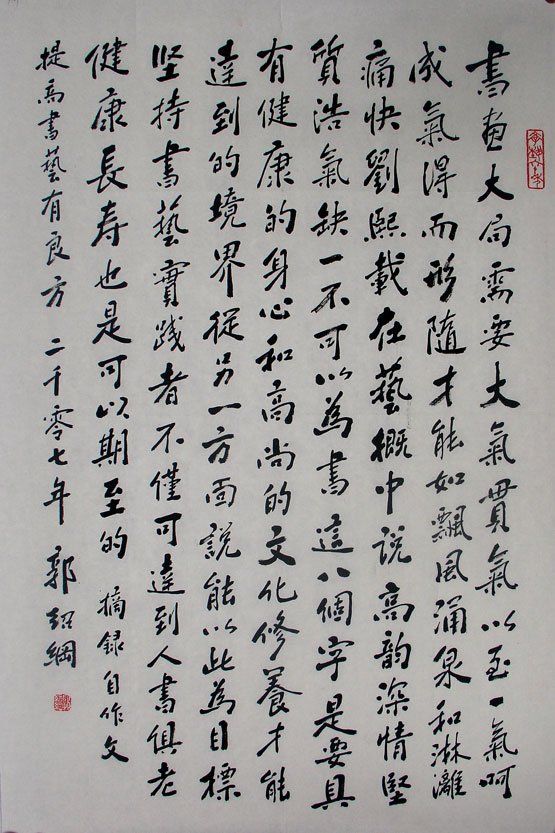 書画大局需要大氣貫氣以至一氣呵
成氣得而形隨才能如飄風涌泉和淋灕
痛快劉熙載在藝概中説高韵深情堅
質浩氣缺一不可以為書這八個字是要具
有健康的身心和高尚的文化修養才能
達到的境界從另一方面説能以此為目標
坚持書藝實践者不僅可達到人書俱老
健康長寿也是可以期至的 摘録自作文
提高書藝有良方 二千零七年 郭绍綱